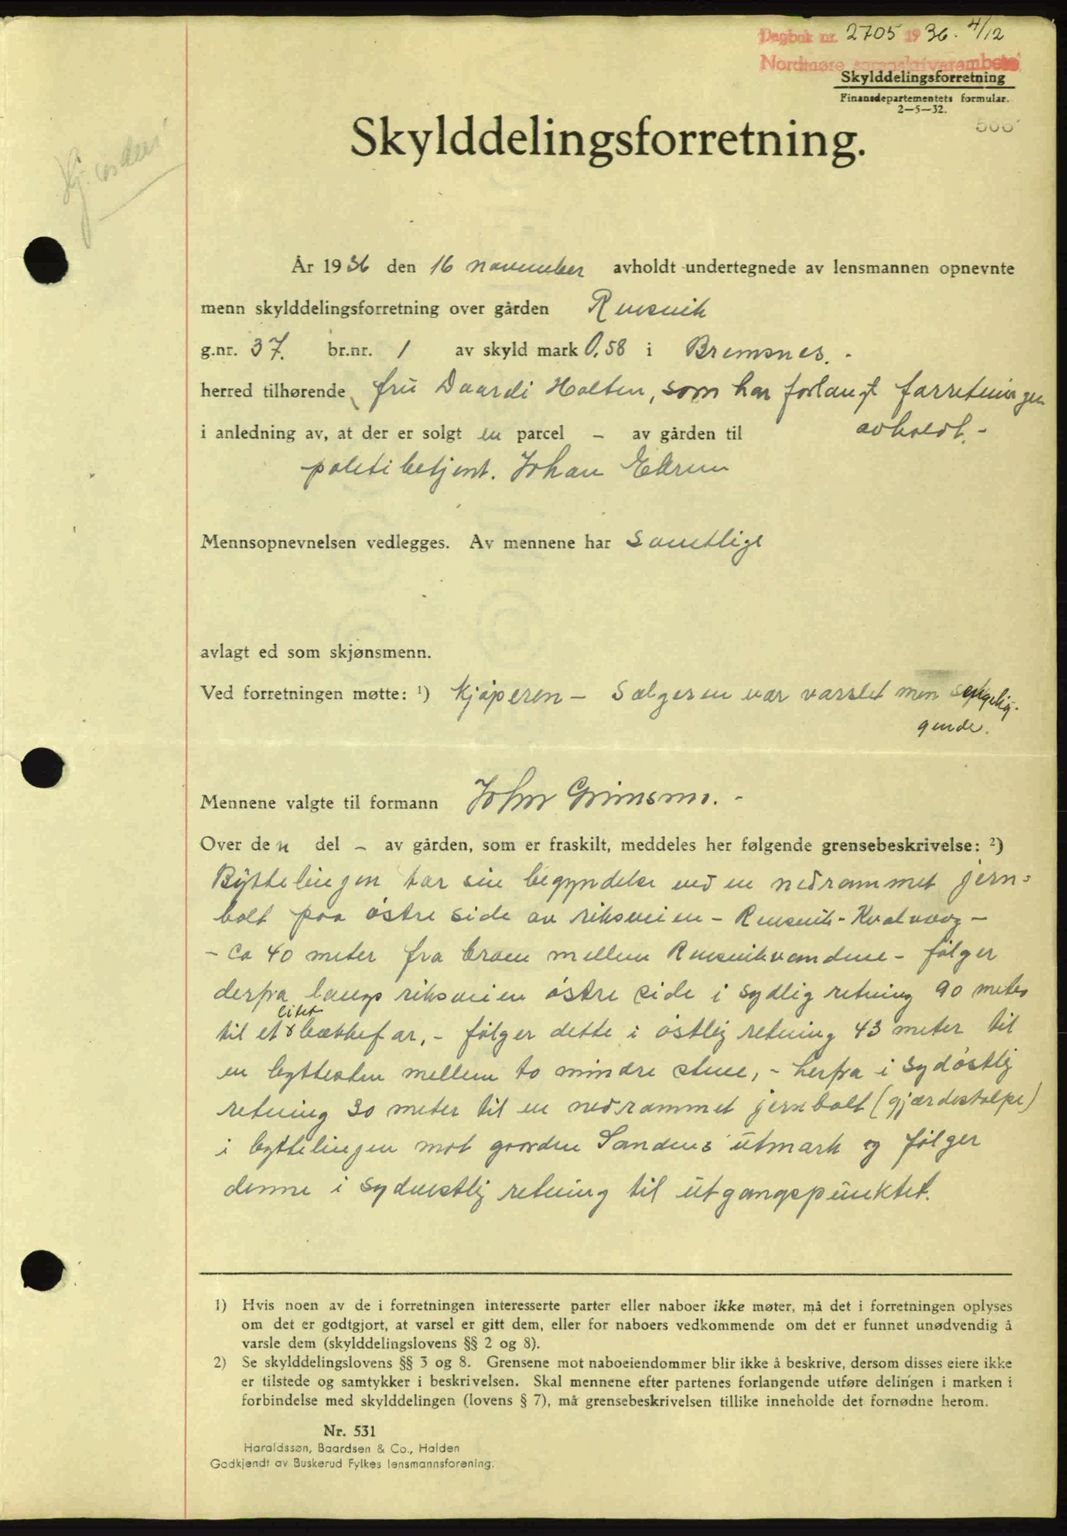 Dagbok nr. 2705 1936. 4/12
Nordmøre sorenskriverembete
Skylddelingsforretning
Finansdepartementets formular.
2—5—32.
Skylddelingsforretning.
År 1936 den 16 november avholdt undertegnede av lensmannen opnevnte
menn skylddelingsforretning over gården Remsvik
g.nr. 37. br.nr. 1 av skyld mark 0,58 i Bremsnes. -
herred tilhørende fru Daardi Holten, som har forlangt forretningen
i anledning av, at der er solgt en parcel – av gården til avholdt. -
politibetjent. Johan Ekrem
Mennsopnevnelsen vedlegges. Av mennene har samtlige
avlagt ed som skjønsmenn.
Ved forretningen møtte: ¹) Kjøperen – Sælgeren var varslet men sengelig-
gende.
Mennene valgte til formann John Grimsmo. -
Over den del – av gården, som er fraskilt, meddeles her følgende grensebeskrivelse: ²)
Byttelinjen tar sin begyndelse ved en nedrammet jern=
bolt paa østre side av riksveien – Remsvik - Kvalvaag –
– ca 40 meter fra broen mellem Remsvikvandene – følger
derfra langs riksveien østre side i sydlig retning 90 meter
til et litet bækkefar, – følger dette i østlig retning 43 meter til
en byttesten mellem to mindre stene, – herfra i sydøstlig
retning 30 meter til en nedrammet jernbolt (gjærdestolpe)
i byttelinjen mot gaarden Sandens utmark og følger
denne i sydvestlig retning til utgangspunktet.
1) Hvis noen av de i forretningen interesserte parter eller naboer ikke møter, må det i forretningen oplyses
om det er godtgjort, at varsel er gitt dem, eller for naboers vedkommende om det er funnet unødvendig å
varsle dem (skylddelingslovens §§ 2 og 8).
2) Se skylddelingslovens §§ 3 og 8. Grensene mot naboeiendommer blir ikke å beskrive, dersom disses eiere ikke
er tilstede og samtykker i beskrivelsen. Skal mennene efter partenes forlangende utføre delingen i marken i
forbindelse med skylddelingen (lovens § 7), må grensebeskrivelsen tillike inneholde det fornødne herom.
Nr. 531
Haraldssøn, Baardsen & Co., Halden
Godkjendt av Buskerud Fylkes lensmannsforening.